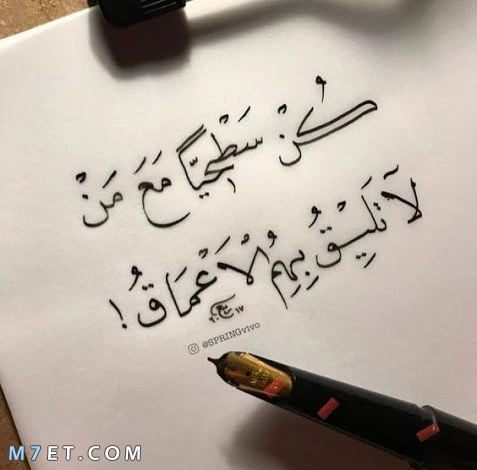 كُنْ سَطْحِيًّا مَعَ مَنْ
لَا تَلِيْقُ بِهِمُ الْأَعْمَاقُ !
@SPRINGvivo
M7ET.COM